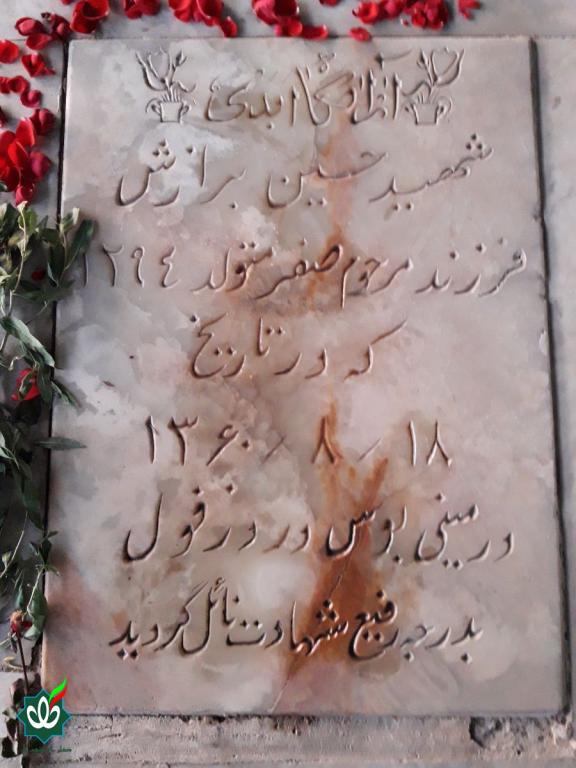 آرامگاه ابدی
شهید حسین برازش
فرزند مرحوم صفر متولد ۱۲۹٤
که در تاریخ
۱۸ / ۸ / ۱۳۶۰
در مینی بوس در دزفول
بدرجه رفیع شهادت نائل گردید